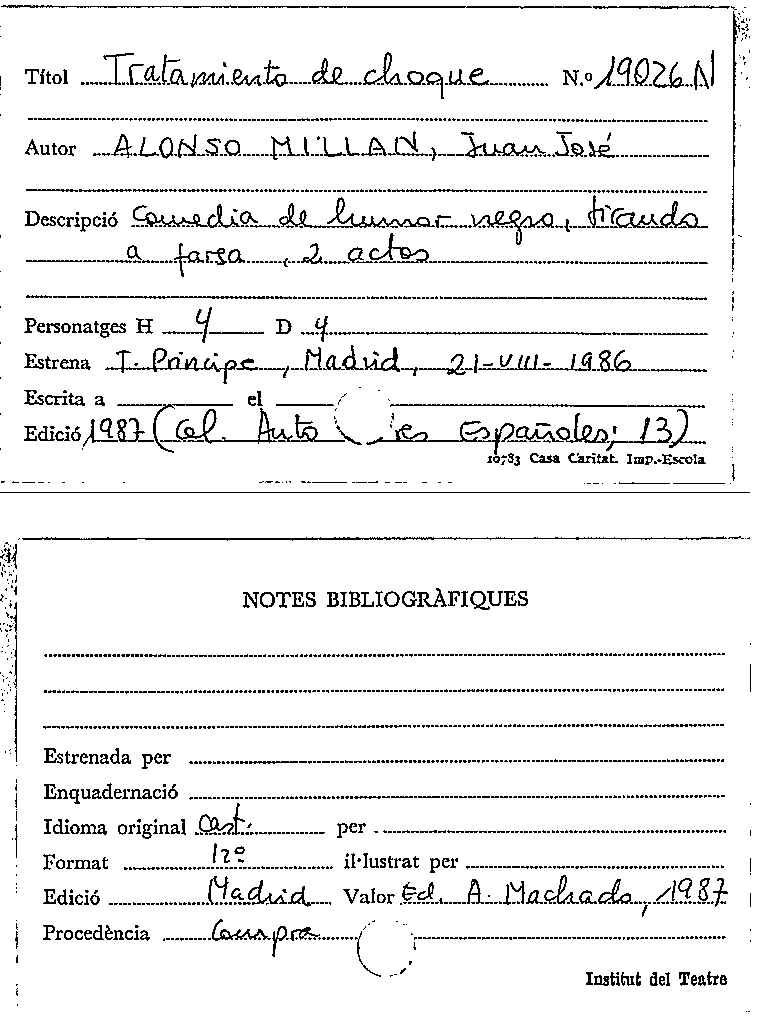 Títol Tratamiento de choque N.º 19026 N
Autor ALONSO MILLAN, Juan José
Descripció Comedia de humor negro, tirando
a farsa, 2 actos
Personatges H 4 D 4
Estrena T. Principe, Madrid, 21-VIII-1986
Escrita a el
Edició 1987 (Col. Autores Españoles; 13)
10783 Casa Caritat. Imp.-Escola
NOTES BIBLIOGRÀFIQUES
Estrenada per
Enquadernació
Idioma original Cast. per
Format 12º il·lustrat per
Edició Madrid Valor Ed. A. Machado, 1987
Procedència Compra
Institut del Teatre